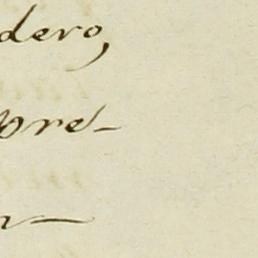 dero,
pre-
n—